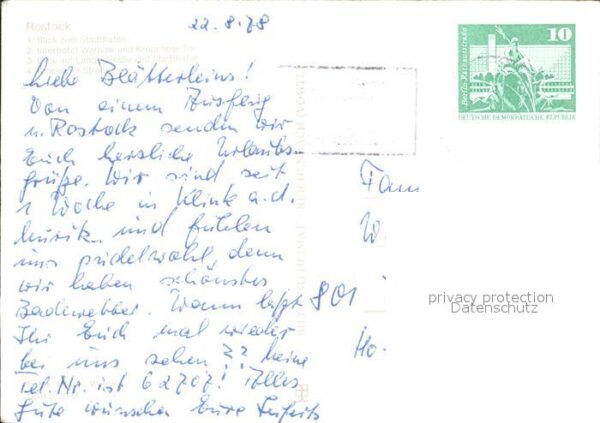 22.8.78
Rostock
1. Blick zum Stadthafen
2. Interhotel Warnow und Kröpeliner Tor
Liebe Blätterleins!
Von einem Ausflug
n. Rostock senden wir
Euch herzliche Urlaubs-
grüße. Wir sind seit
1 Woche in Klink a. d.
Müritz und fühlen
uns pudelwohl, denn
wir haben schönstes
Badewetter. Wann laßt
Ihr Euch mal wieder
bei uns sehen?? Meine
Tel. Nr. ist 62707! Alles
Gute wünschen Eure
10
Berlin-Rathausstraße
DEUTSCHE DEMOKRATISCHE REPUBLIK
Fam
W
801
Ho.
privacy protection
Datenschutz